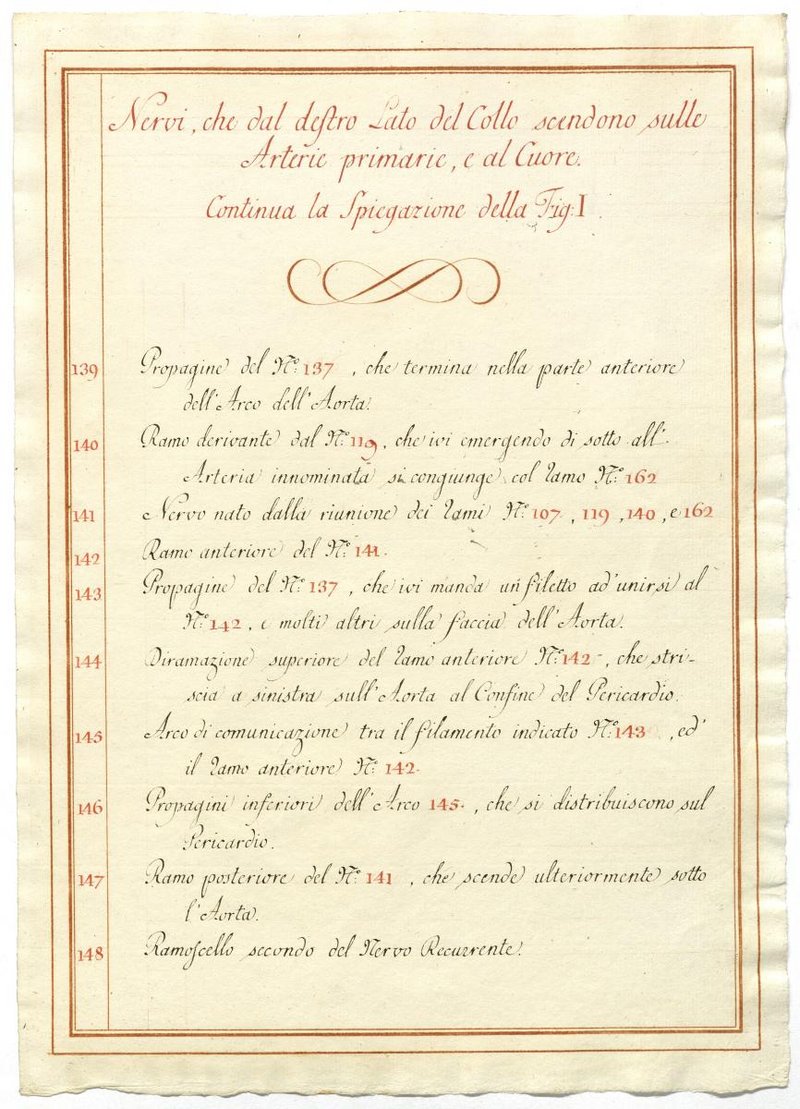 Nervi, che dal destro Lato del Collo scendono sulle
Arterie primarie, e al Cuore.
Continua la Spiegazione della Fig: I.
139 Propagine del N.º 137, che termina nella parte anteriore
dell'Arco dell'Aorta.
140 Ramo derivante dal N.º 119, che ivi emergendo di sotto all'
Arteria innominata si congiunge col ramo N.º 162
141 Nervo nato dalla riunione dei rami N.º 107, 119, 140, e 162
142 Ramo anteriore del N.º 141.
143 Propagine del N.º 137, che ivi manda un filetto ad'unirsi al
N.º 142, e molti altri sulla faccia dell'Aorta.
144 Diramazione superiore del ramo anteriore N.º 142, che stri-
scia a sinistra sull'Aorta al Confine del Pericardio.
145 Arco di comunicazione tra il filamento indicato N.º 143, ed'
il ramo anteriore N.º 142.
146 Propagini inferiori dell'Arco 145., che si distribuiscono sul
Pericardio.
147 Ramo posteriore del N.º 141, che scende ulteriormente sotto
l'Aorta.
148 Ramoscello secondo del Nervo Recurrente.